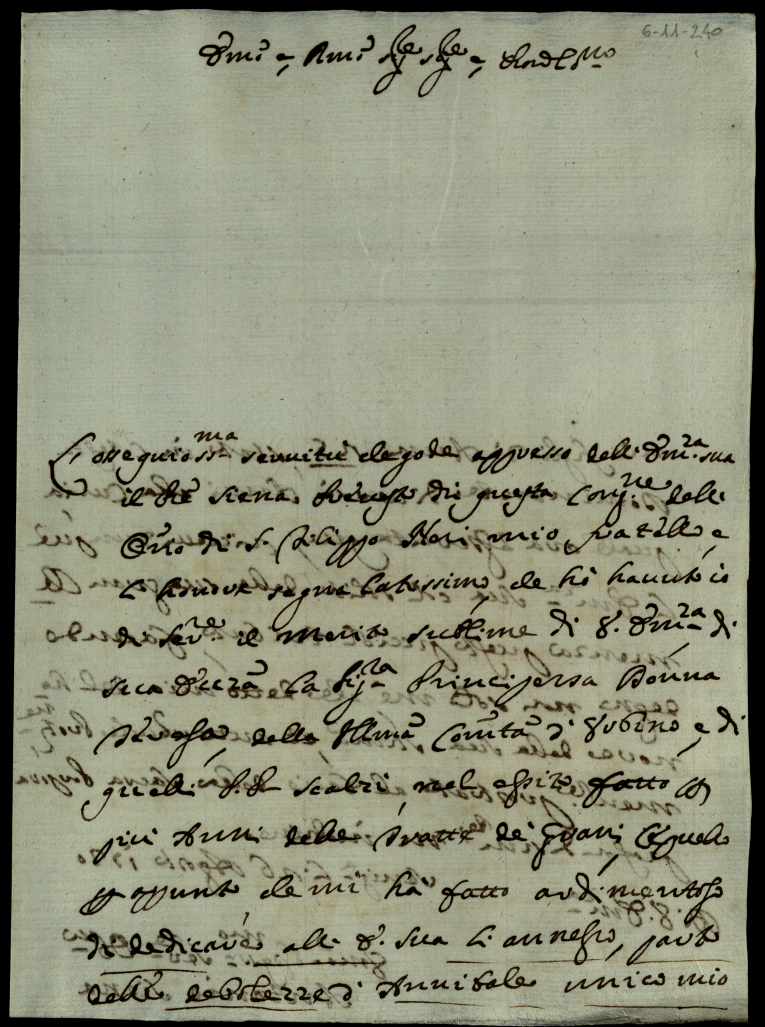 6-11-240
Em.o e Rm.o Sig.re Sig.re e Pron Col.mo
L'ossequios.ma servitù che gode appresso dell'Em.za sua
il Pre Siena Preposto di questa Cong.ne dell
Orio di S. Filippo Neri mio fratello e
L'honore segnalatissimo, che hò havuto io
di ser.re il Merito sublime di V. Em.za di
sua Ecczã la Sig.ra Principessa Donna
Teresa, della Illmã Comtà d'Urbino, e di
quelli P.P. Scalzi, nel essito fatto p
più Anni delle tratte de Grani, è quello
p appunto che mi hà fatto ardimentoso
di dedicare all' E. sua L'annesso, parto
delle debolezze d'Annibale unico mio